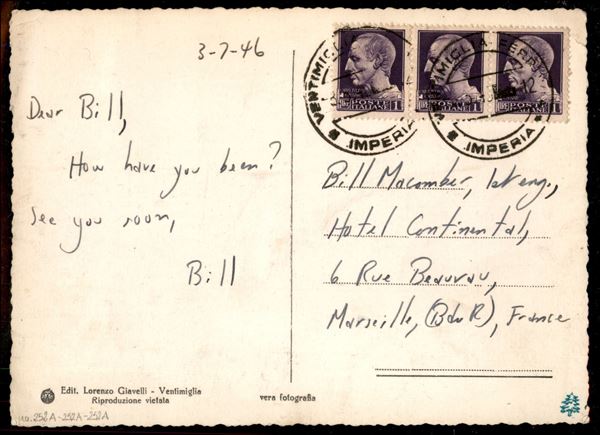 3-7-46
Dear Bill,
How have you been?
See you soon,
Bill
Bill Macomber,
Hotel Continental,
6 Rue Beauvau,
Marseille, (BduR), France
VENTIMIGLIA
IMPERIA
IMPERIA
POSTE ITALIANE
POSTE ITALIANE
POSTE ITALIANE
Edit. Lorenzo Giavelli - Ventimiglia
Riproduzione vietata
vera fotografia
no. 252A-252A-252A